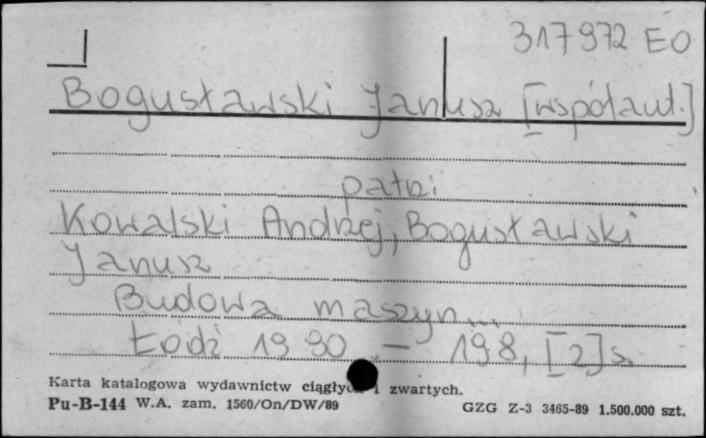 317972 EO
Bogusławski Janusz [współaut.]
patrz:
Kowalski Andrzej, Bogusławski
Janusz
Budowa maszyn...
Łódź 1990. - 198, [2] s.
Karta katalogowa wydawnictw ciągłych i zwartych.
Pu-B-144 W.A. zam. 1560/On/DW/89 GZG Z-3 3465-89 1.500.000 szt.